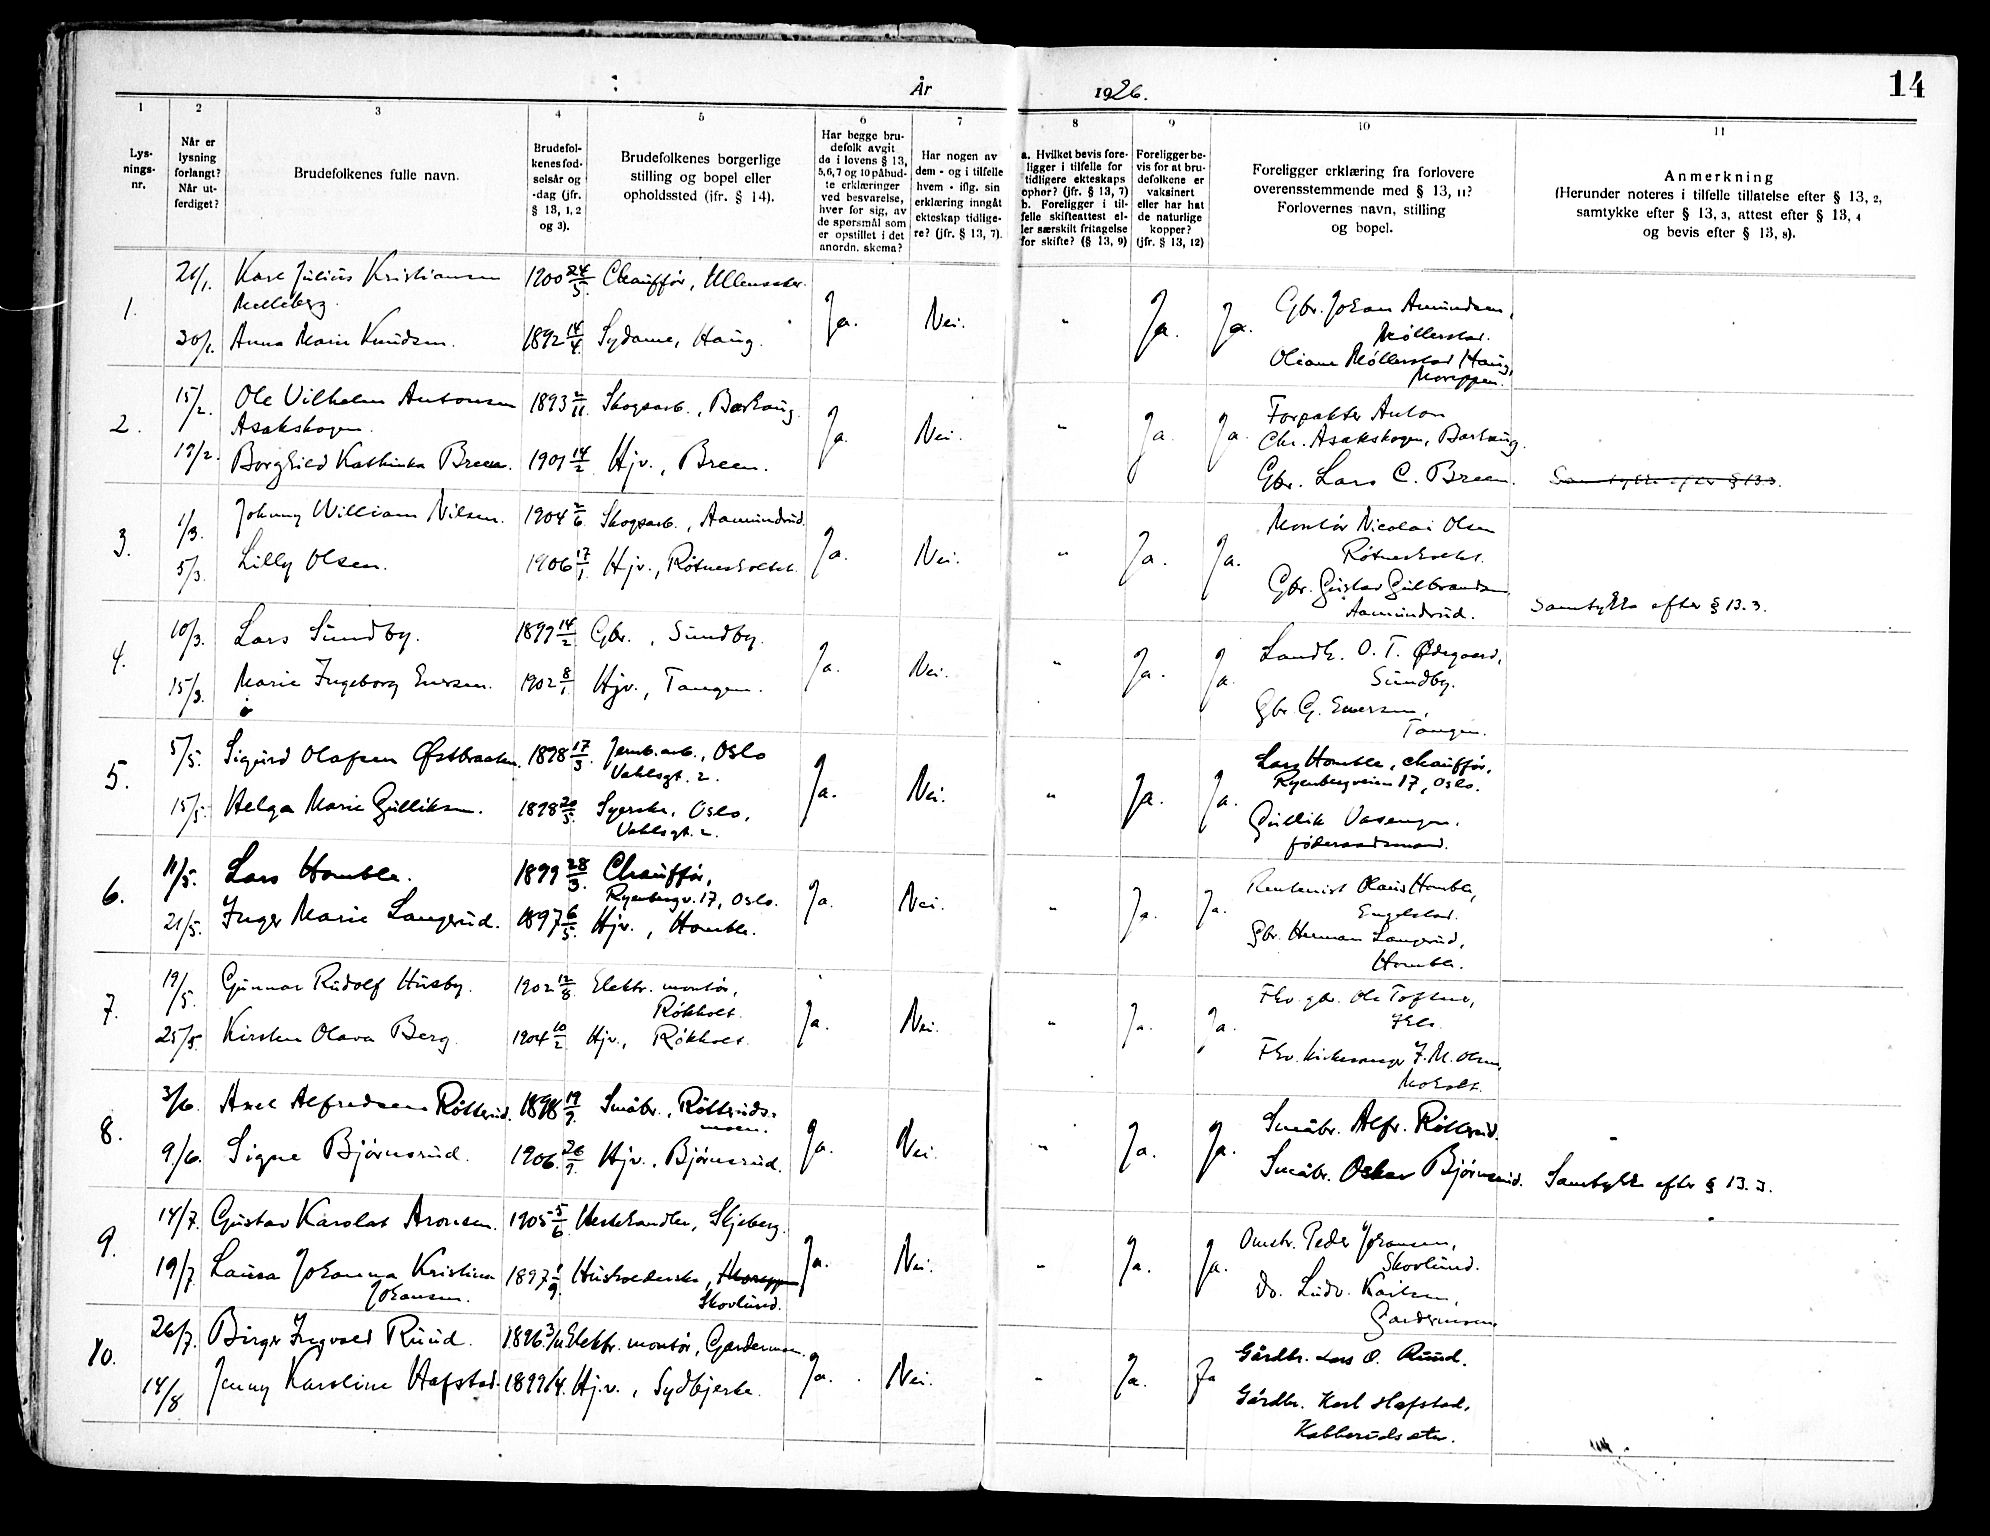 År 1926.
14
1 2 3 4 5 6 7 8 9 10 11
Lysningsnr.
Når er lysning forlangt? Når utferdiget?
Brudefolkenes fulle navn.
Brudefolkenes fødselsår og -dag (jfr. § 13, 1, 2 og 3).
Brudefolkenes borgerlige stilling og bopel eller opholdssted (jfr. § 14).
Har begge brudefolk avgit de i lovens § 13, 5, 6, 7 og 10 påbudte erklæringer ved besvarelse, hver for sig, av de spørsmål som er opstillet i det anordn. skema?
Har nogen av dem - og i tilfelle hvem - iflg. sin erklæring inngått ekteskap tidligere? (jfr. § 13, 7).
a. Hvilket bevis foreligger i tilfelle for tidligere ekteskaps ophør? (jfr. § 13, 7) b. Foreligger i tilfelle skifteattest eller særskilt fritagelse for skifte? (§ 13, 9)
Foreligger bevis for at brudefolkene er vaksinert eller har hat de naturlige kopper? (jfr. § 13, 12)
Foreligger erklæring fra forlovere overensstemmende med § 13, 11? Forlovernes navn, stilling og bopel.
Anmerkning
(Herunder noteres i tilfelle tillatelse efter § 13, 2, samtykke efter § 13, 3, attest efter § 13, 4 og bevis efter § 13, 8).
1. 26/1. Karl Julius Kristiansen 1900 24/5. Chauffør, Ullensaker. Ja. Nei. " Ja. Ja. Gbr. Johan Amundsen,
Melleberg. Møllerstad.
30/1. Anna Marie Knudsen. 1892 14/4. Sydame, Haug. Oliane Møllerstad Haug,
Moreppen.
2. 15/2. Ole Vilhelm Antonsen 1893 2/11. Skogsarb., Barhaug. Ja. Nei. " Ja. Ja. Forpakter Anton
Asakskogen. Chr. Asakskogen, Barhaug.
19/2. Borghild Kathinka Breen. 1901 14/2 Hjv., Breen. Gbr. Lars C. Breen. Samtykke efter § 13.3.
3. 1/3. Johnny William Nilsen. 1904 2/6. Skogsarb., Aamundrud. Ja. Nei. " Ja. Ja. Montør Nicolai Olsen
Røtnesholtet.
5/3. Lilly Olsen. 1906 17/1. Hjv., Røtnesholtet. Gbr. Gustav Gulbrandsen
Aamundrud. Samtykke efter § 13.3.
4. 10/3. Lars Sundby. 1899 14/2. Gbr., Sundby. Ja. Nei. " Ja. Ja. Landh. O. T. Ødegaard,
Sundby.
15/3. Marie Ingeborg Enersen. 1902 8/1 Hjv., Tangen. Gbr. G. Enersen,
Tangen.
5. 5/5. Sigurd Olafsen Østbraaten. 1898 17/3. Jernb.arb., Oslo Ja. Nei. " Ja. Ja. Lars Homble, chauffør,
Vahlsgt. 2. Ryenbergveien 17, Oslo.
15/5. Helga Marie Gulliksen. 1898 20/5. Syerske, Oslo, Gullik Vasengen.
Vahlsgt. 2. føderaadsmand.
6. 11/5. Lars Homble. 1899 28/3. Chauffør, Ja. Nei. " Ja. Ja. Rentenist Olaus Homble,
Ryenbergv. 17, Oslo. Engelstad.
21/5. Inger Marie Langerud. 1897 6/5. Hjv., Homble. Gbr. Herman Langerud,
Homble.
7. 19/5. Gunnar Rudolf Husby. 1902 12/8. Elektr. montør, Ja. Nei. " Ja. Ja. Fhv. gbr. Ole Tofsrud,
Røkholt.
25/5. Kirsten Olava Berg. 1904 10/2 Hjv., Røkholt. Fhv. kirkesanger J. M. Olsen,
Moholt.
8. 3/6. Axel Alfredsen Røtterud. 1898 19/9. Småbr., Røtteruds- Ja. Nei. " Ja. Ja. Småbr. Alfr. Røtterud.
moen.
9/6. Signe Bjørnsrud. 1906. 26/9. Hjv., Bjørnsrud. Småbr. Oskar Bjørnsrud. Samtykke efter § 13.3.
9. 14/7. Gustav Karolat Aronsen. 1905 5/6 Hestehandler, Skjeberg. Ja. Nei. " Ja. Ja. Omstr. Peder Johansen,
Skovlund.
19/7 Laura Johanna Kristine 1897 1/9. Husholderske, Do. Ludv. Karlsen,
Johansen. Skovlund. Gardermoen.
10. 26/7. Birger Ingvald Ruud. 1896 3/11 Elektr. montør, Gardermoen. Ja. Nei. " Ja. Ja Gårdbr. Lars O. Ruud.
14/8 Jenny Karoline Hafstad. 1899 1/4. Hj.v., Sydbjerke. Gårdbr. Karl Hafstad,
Kabberudsæter.